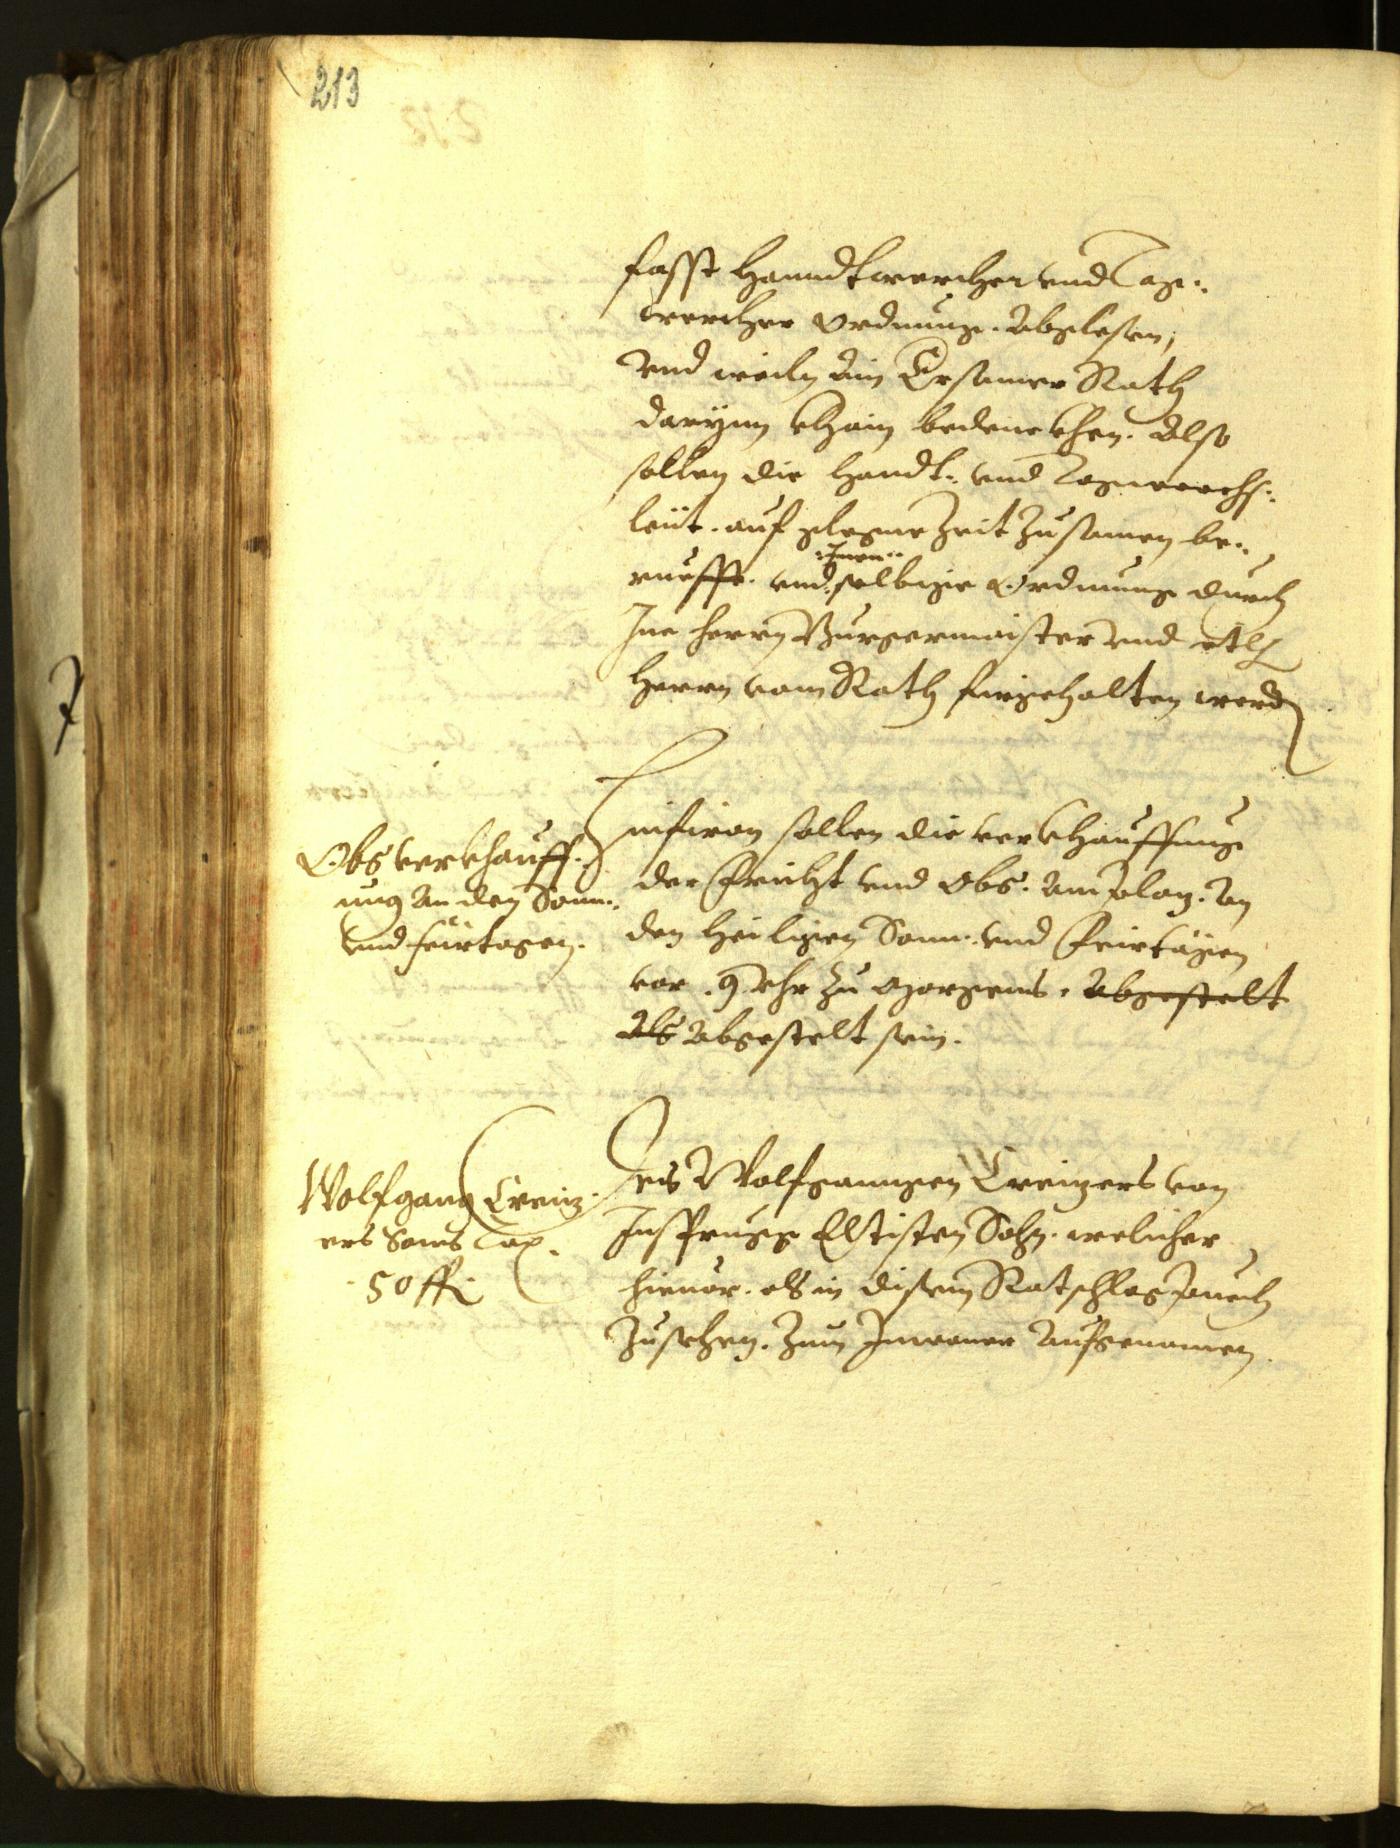 213
fasst Hanndtwercher vnd Tag„
wercher Ordnung. Abgelesen,
Vnd weiln Ain Ersamer Rath
darynn khain bedenckhen. Also
sollen die Handt„ vnd Tagwerchs„
leüt. auf glegne Zeit Zusamen be„
ruefft. vnd :Inen: selbige Ordnung durch
Ine herrn Burgermaister vnd etlich
Herrn vom Rath furgehalten werden
Obs verkhauff„
ung An den Sonn„
vnd feirtagen.
Hinfiron sollen die verkhauffung
der Frücht vnd Obs. Am plaz. An
den Heiligen Sonn„ vnd Feirtägen
vor .9. vhr Zu Morgens. Abgestelt
Als Abgestelt sein.
Wolfgang Creiz„
ers Sons Tax.
50 fl.
Des Wolfganngen Creizers von
Insprugg Eltisten Sohn. welicher
hieuor. als in disem Ratschlag puech
Zusehen. Zum Inwoner Aufgenomen